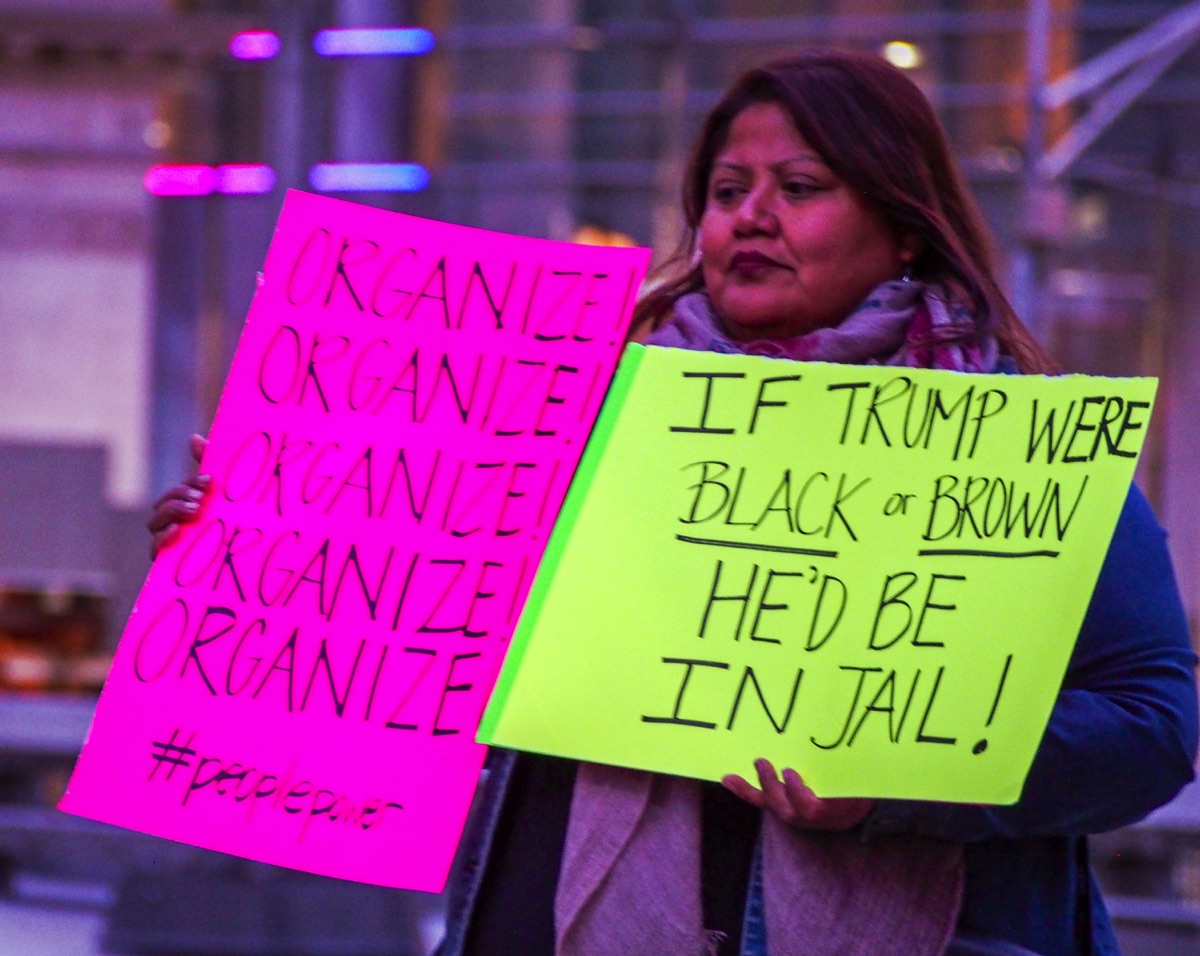 ORGANIZE!
ORGANIZE!
ORGANIZE!
ORGANIZE!
ORGANIZE
#peoplepower
IF TRUMP WERE
BLACK or BROWN
HE'D BE
IN JAIL!